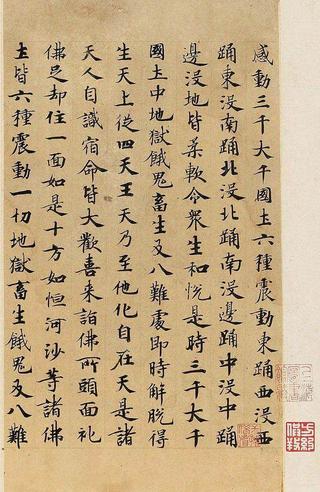 感動三千大千國土六種震動東踊西没西
踊東没南踊北没北踊南没邊踊中没中踊
邊没地皆柔軟令衆生和悅是時三千大千
國土中地獄餓鬼畜生及八難處即時解脱得
生天上從四天王天乃至他化自在天是諸
天人自識宿命皆大歡喜来詣佛所頭面礼
佛足却住一面如是十方如恒河沙等諸佛
土皆六種震動一切地獄畜生餓鬼及八難